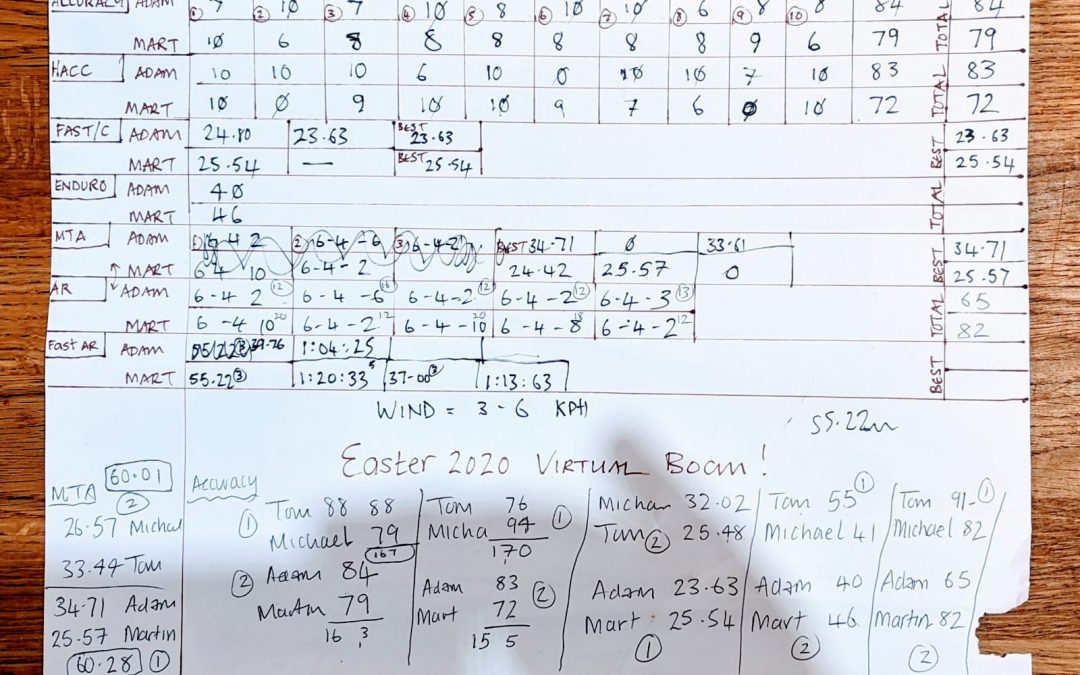 ACCURACY ADAM ① 7 ② 10 ③ 7 ④ 10 ⑤ 8 ⑥ 10 ⑦ 10 ⑧ 6 ⑨ 8 ⑩ 8 84 TOTAL 84
MART 10 6 8 8 8 8 8 8 9 6 79 79
HACC ADAM 10 10 10 6 10 0 10 10 7 10 83 TOTAL 83
MART 10 0 9 10 10 9 7 6 0 10 72 72
FAST/C ADAM 24.80 23.63 BEST 23.63 BEST 23.63
MART 25.54 — BEST 25.54 25.54
ENDURO ADAM 40 TOTAL
MART 46
MTA ADAM ① 6-4 2 ② 6-4-6 ③ 6-4-2 BEST 34.71 0 33.61 BEST 34.71
MART 6-4 10 6-4-2 24.42 25.57 0 25.57
AR ADAM 6-4 2 12 6-4-6 16 6-4-2 12 6-4-2 12 6-4-3 13 TOTAL 65
MART 6-4 10 20 6-4-2 12 6-4-10 20 6-4-8 18 6-4-2 12 82
Fast AR ADAM 39.76 1:04:25 BEST
MART 55.22 ③ 1:20:33 5 37-00 1:13:63
WIND = 3-6 KPH
55.22m
Easter 2020 VIRTUAL BOOM!
MTA 60.01 ②
26.57 Michael
33.44 Tom
34.71 Adam
25.57 Martin
60.28 ①
Accuracy
① Tom 88 88
Michael 79
167
② Adam 84
Martin 79
16 3
Tom 76
Micha 94 ①
170
Adam 83
Mart 72 ②
15 5
Michael 32.02
Tom ② 25.48
Adam 23.63
Mart 25.54
①
Tom 55 ①
Michael 41
Adam 40
Mart 46
②
Tom 91 ①
Michael 82
Adam 65
Martin 82
②